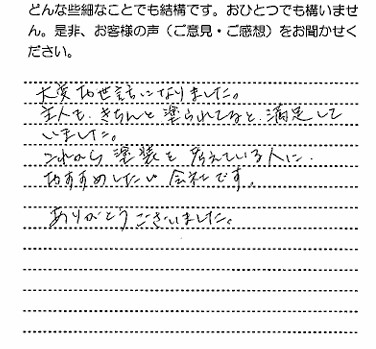 どんな些細なことでも結構です。おひとつでも構いませ
ん。是非、お客様の声（ご意見・ご感想）をお聞かせく
ださい。
大変お世話になりました。
主人も、きちんと塗られてると、満足して
いました。
これから塗装を考えている人に、
おすすめしたい会社です。
ありがとうございました。